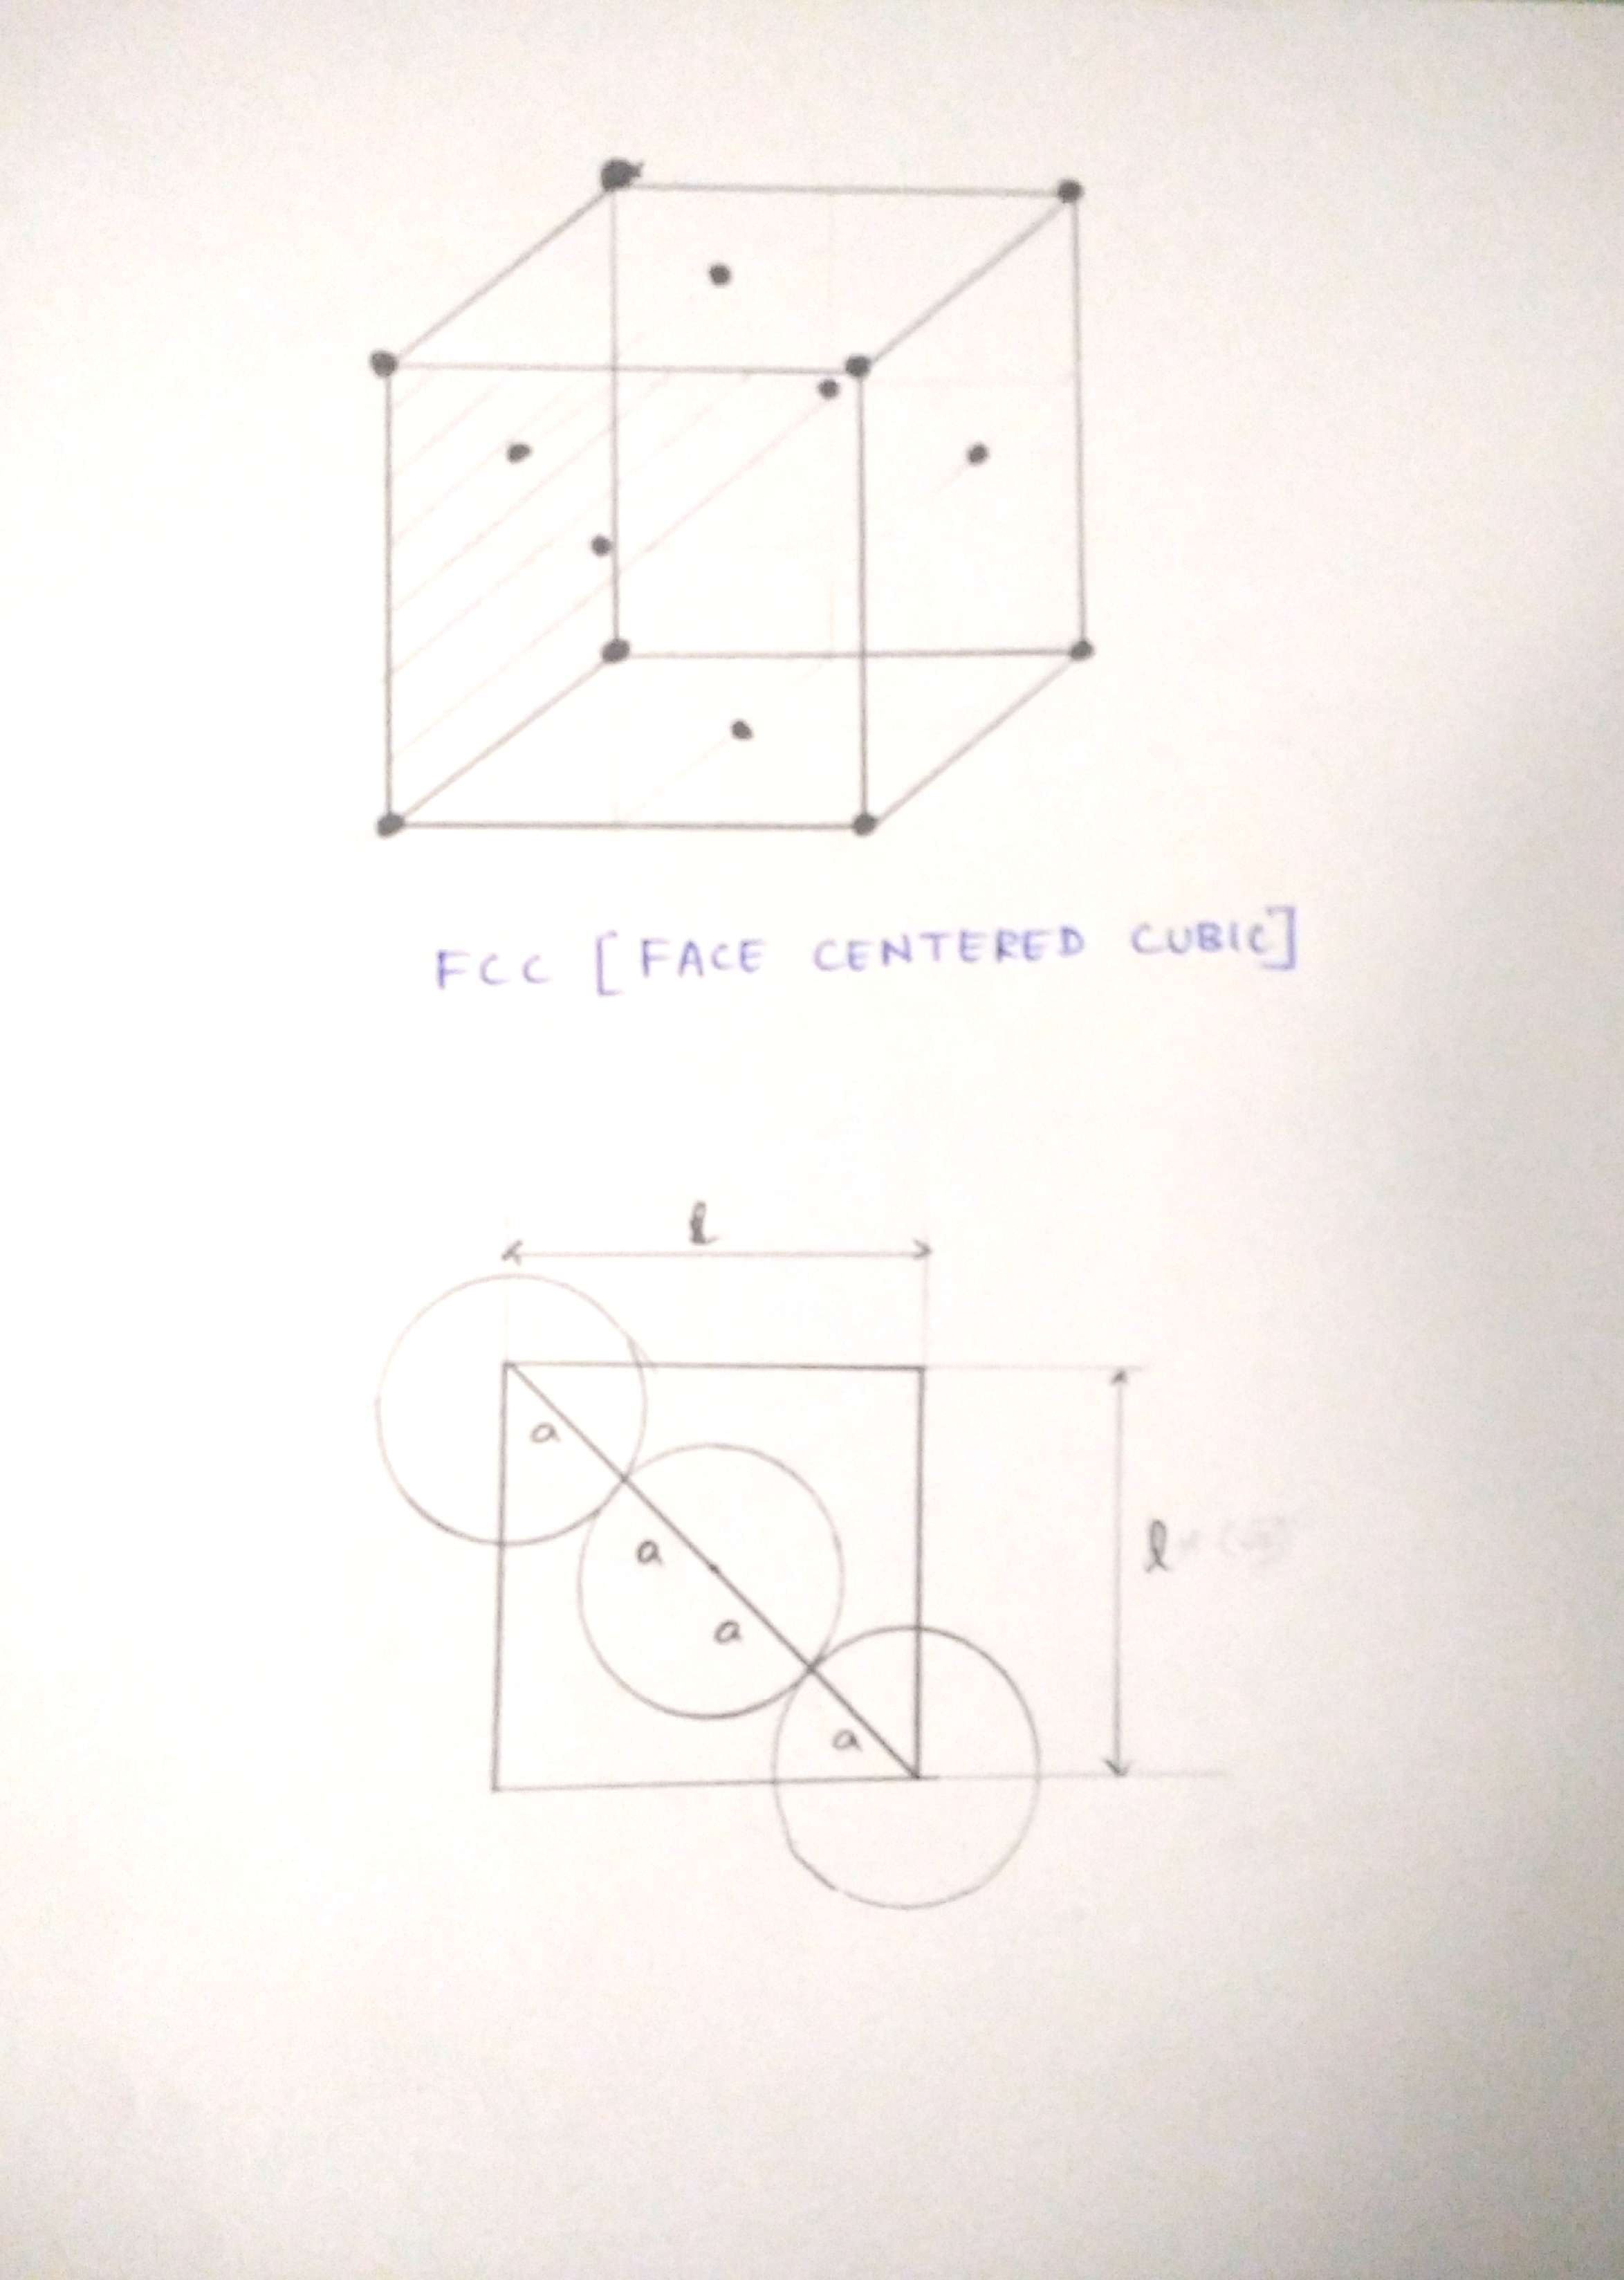 FCC [FACE CENTERED CUBIC]
l
a
l
a
a
a